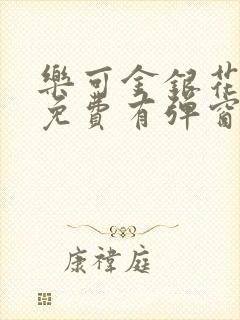 樂可金銀花
免費有彈窗
康禕庭